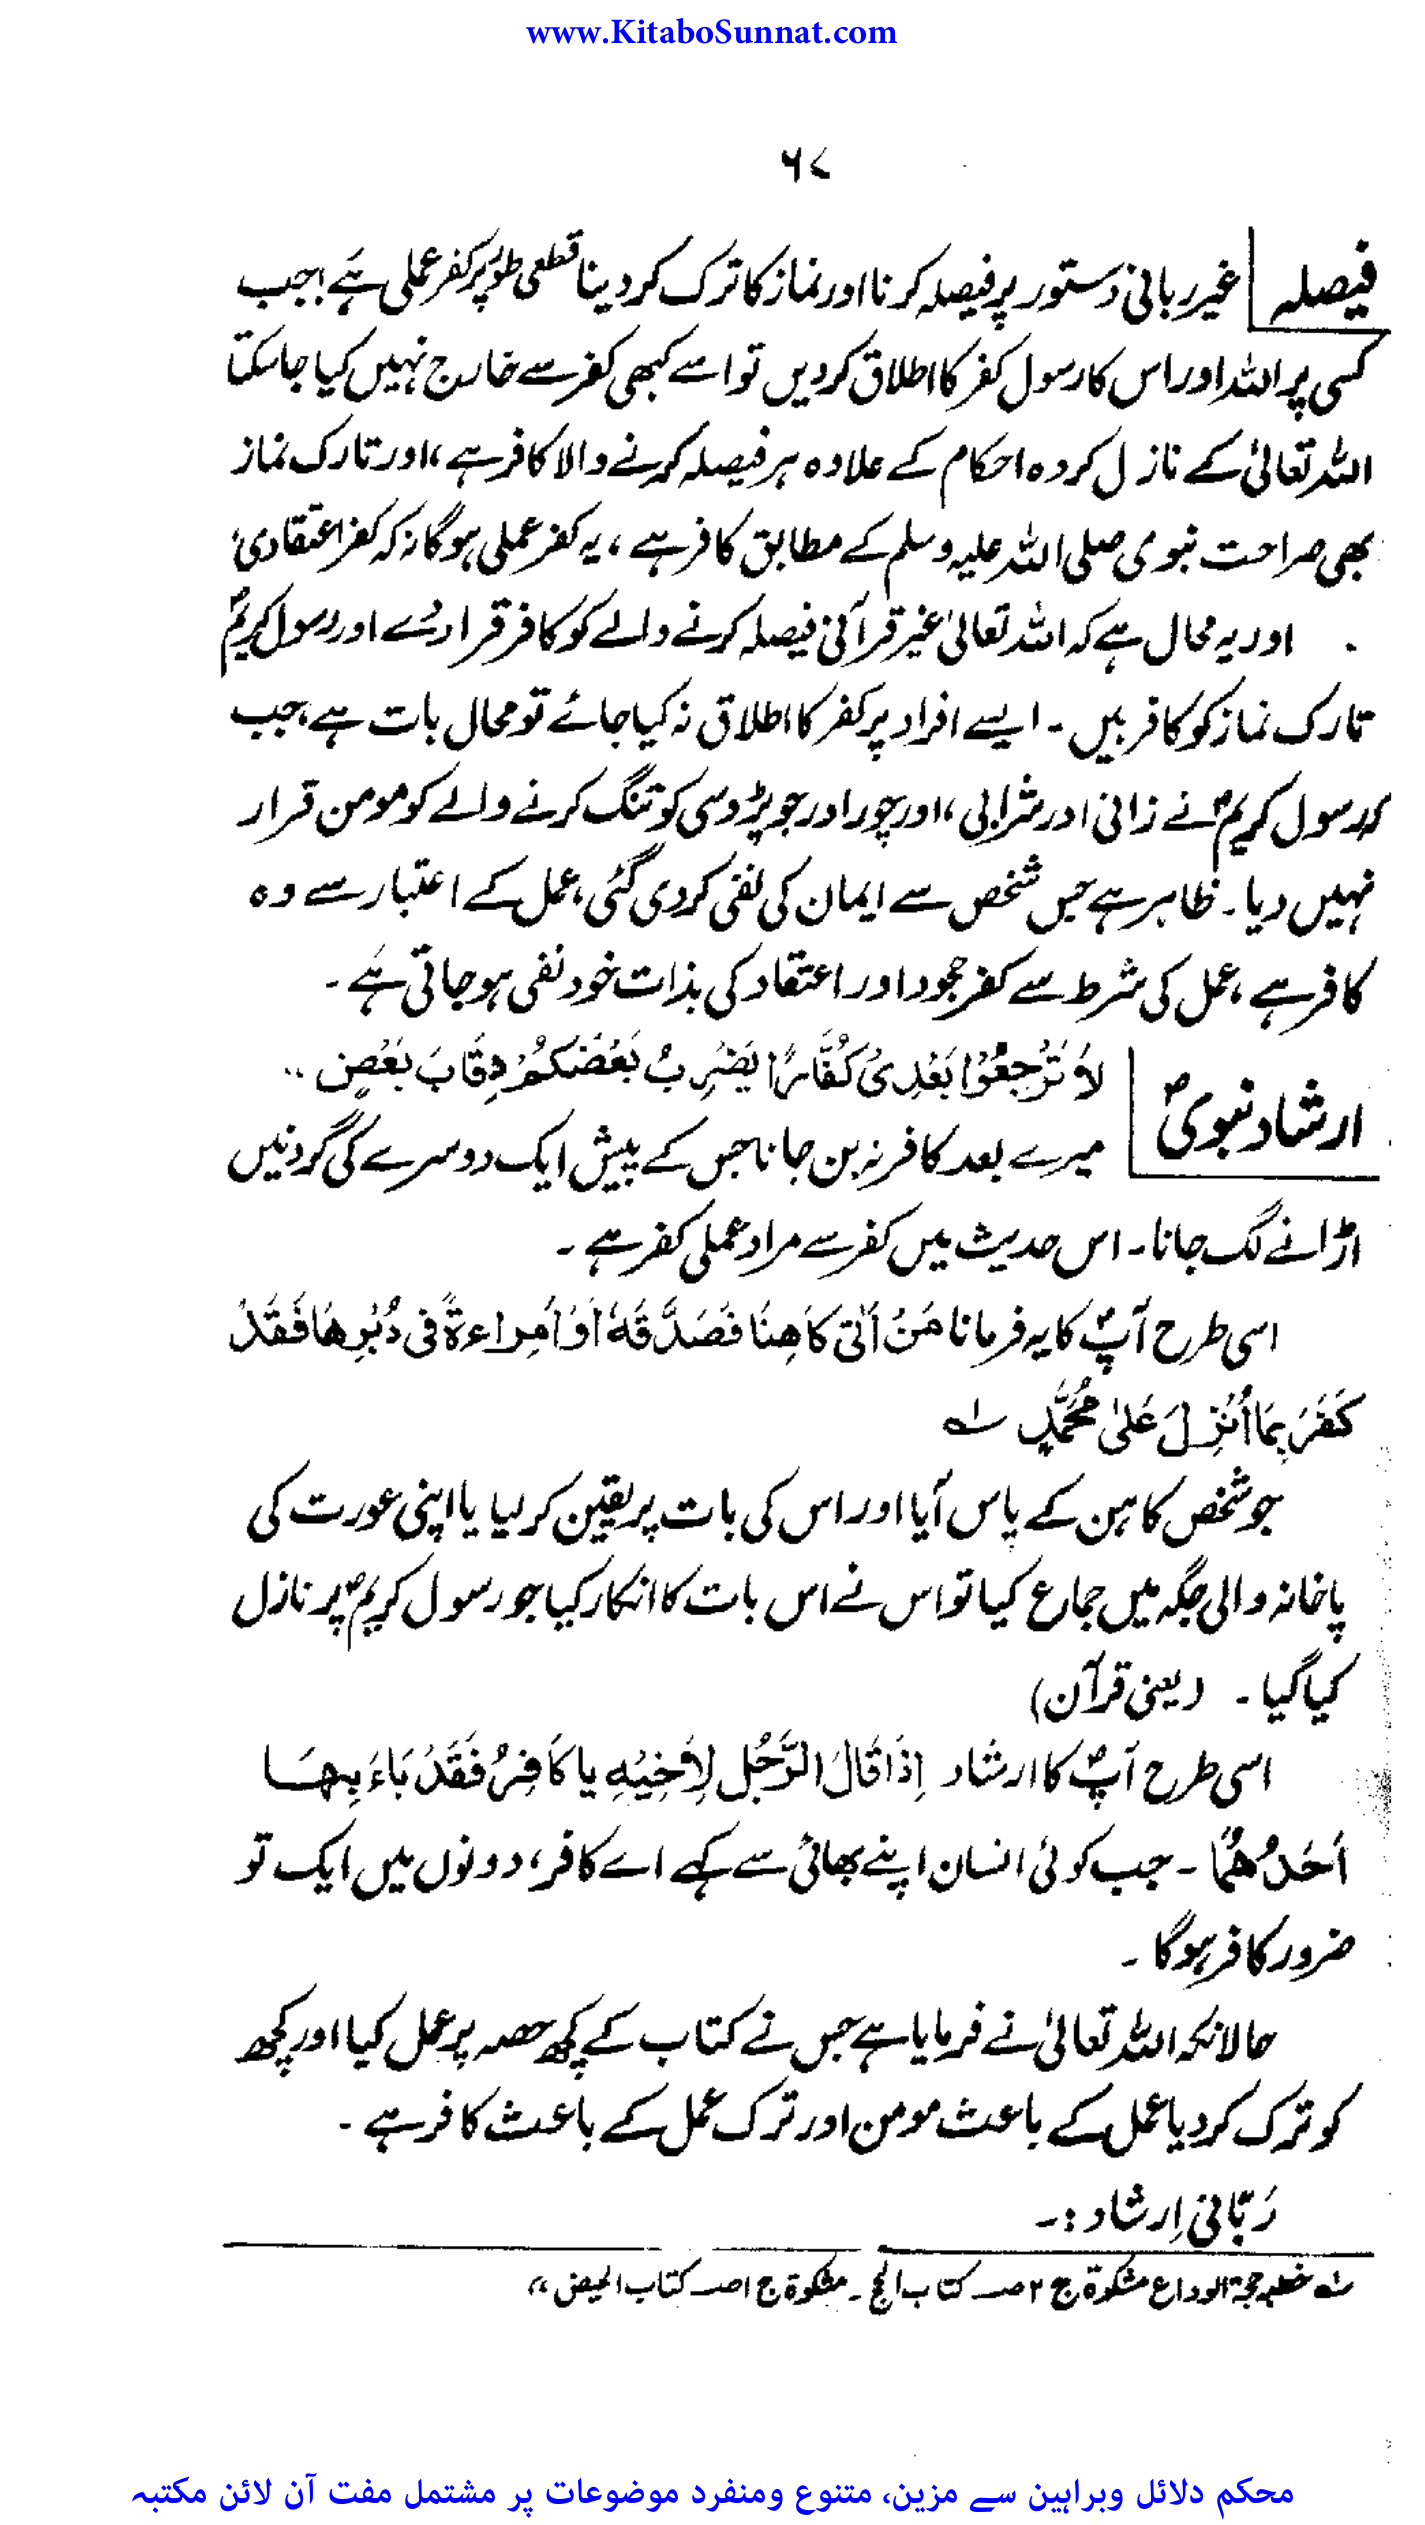 www.KitaboSunnat.com
۶۷
فیصلہ غیر ربانی دستور پر فیصلہ کرنا اور نماز کا ترک کر دینا قطعی طور پر کفر عملی ہے، جب
کسی پر اللہ اور اس کا رسول کفر کا اطلاق کر دیں تو اسے کبھی کفر سے خارج نہیں کیا جا سکتا
اللہ تعالیٰ کے نازل کردہ احکام کے علاوہ ہر فیصلہ کرنے والا کافر ہے، اور تارک نماز
بھی صراحت نبوی صلی اللہ علیہ وسلم کے مطابق کافر ہے، یہ کفر عملی ہوگا نہ کہ کفر اعتقادی
اور یہ محال ہے کہ اللہ تعالیٰ غیر قرآنی فیصلہ کرنے والے کو کافر قرار دے اور رسول کریمؐ
تارک نماز کو کافر کہیں۔ ایسے افراد پر کفر کا اطلاق نہ کیا جائے تو محال بات ہے، جب
کہ رسول کریمؐ نے زانی اور شرابی، اور چور اور جو پڑوسی کو تنگ کرنے والے کو مومن قرار
نہیں دیا۔ ظاہر ہے جس شخص سے ایمان کی نفی کر دی گئی، عمل کے اعتبار سے وہ
کافر ہے، عمل کی شرط سے کفر جحود اور اعتقاد کی بذات خود نفی ہو جاتی ہے۔
لَا تَرْجِعُوْا بَعْدِیْ کُفَّارًا یَضْرِبُ بَعْضُکُمْ رِقَابَ بَعْضٍ
ارشاد نبویؐ میرے بعد کافر نہ بن جانا جس کے پیش ایک دوسرے کی گردنیں
اڑانے لگ جانا۔ اس حدیث میں کفر سے مراد عملی کفر ہے۔
اسی طرح آپؐ کا یہ فرمانا مَنْ أَتٰی کَاهِنًا فَصَدَّقَهٗ أَوْ اَمِراءةً فی دُبُرِهَا فَقَدْ
کَفَرَ بِمَا أُنْزِلَ عَلٰی مُحَمَّدٍ ؂۱
جو شخص کاہن کے پاس آیا اور اس کی بات پر یقین کر لیا یا اپنی عورت کی
پاخانہ والی جگہ میں جماع کیا تو اس نے اس بات کا انکار کیا جو رسول کریمؐ پر نازل
کیا گیا۔ (یعنی قرآن)
اسی طرح آپؐ کا ارشاد إِذَا قَالَ الرَّجُل لِأَخِیْهِ یا کَافِرُ فَقَدْ بَاءَ بِهَا
أَحَدُهُمَا۔ جب کوئی انسان اپنے بھائی سے کہے اے کافر، دونوں میں ایک تو
ضرور کافر ہوگا۔
حالانکہ اللہ تعالیٰ نے فرمایا ہے جس نے کتاب کے کچھ حصہ پر عمل کیا اور کچھ
کو ترک کر دیا عمل کے باعث مومن اور ترک عمل کے باعث کافر ہے۔
رَبَّانی اِرشاد :۔
؂۱ خطبہ حجۃ الوداع مشکوۃ ج ۲ صـ کتاب الحج۔ مشکوۃ ج ۱ صـ کتاب الحیض ؍؍
محکم دلائل وبراہین سے مزین، متنوع ومنفرد موضوعات پر مشتمل مفت آن لائن مکتبہ